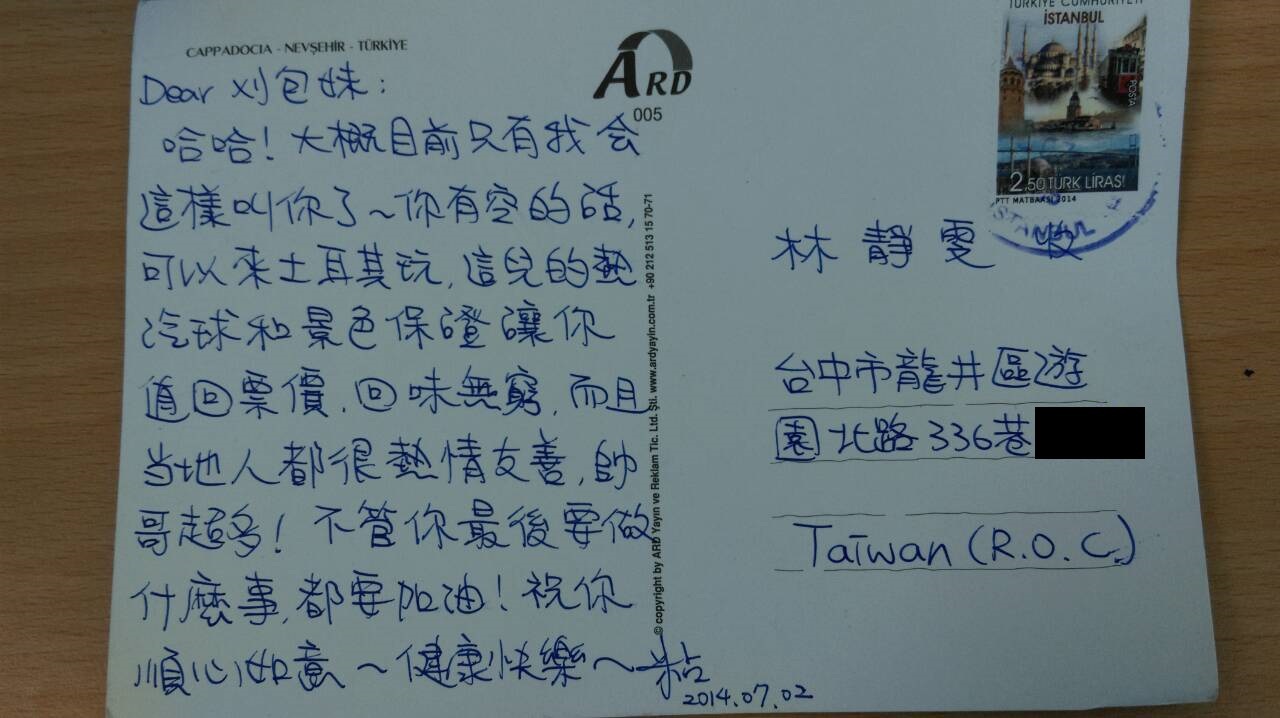 CAPPADOCIA - NEVŞEHİR - TÜRKİYE
ARD
005
Dear 刈包妹：
哈哈！大概目前只有我会
這樣叫你了～你有空的話，
可以來土耳其玩，這兒的熱
汽球和景色保證讓你
值回票價，回味無窮，而且
当地人都很熱情友善，帥
哥超多！不管你最後要做
什麼事，都要加油！祝你
順心如意～健康快樂～粘
2014.07.02
© copyright by ARD Yayın ve Reklam Tic. Ltd. Şti. www.ardyayin.com.tr +90 212 513 15 70-71
TÜRKİYE CUMHURİYETİ
İSTANBUL
POSTA
2.50 TÜRK LİRASI
PTT MATBAASI 2014
林靜雯 收
台中市龍井區遊
園北路336巷
Taiwan (R.O.C.)